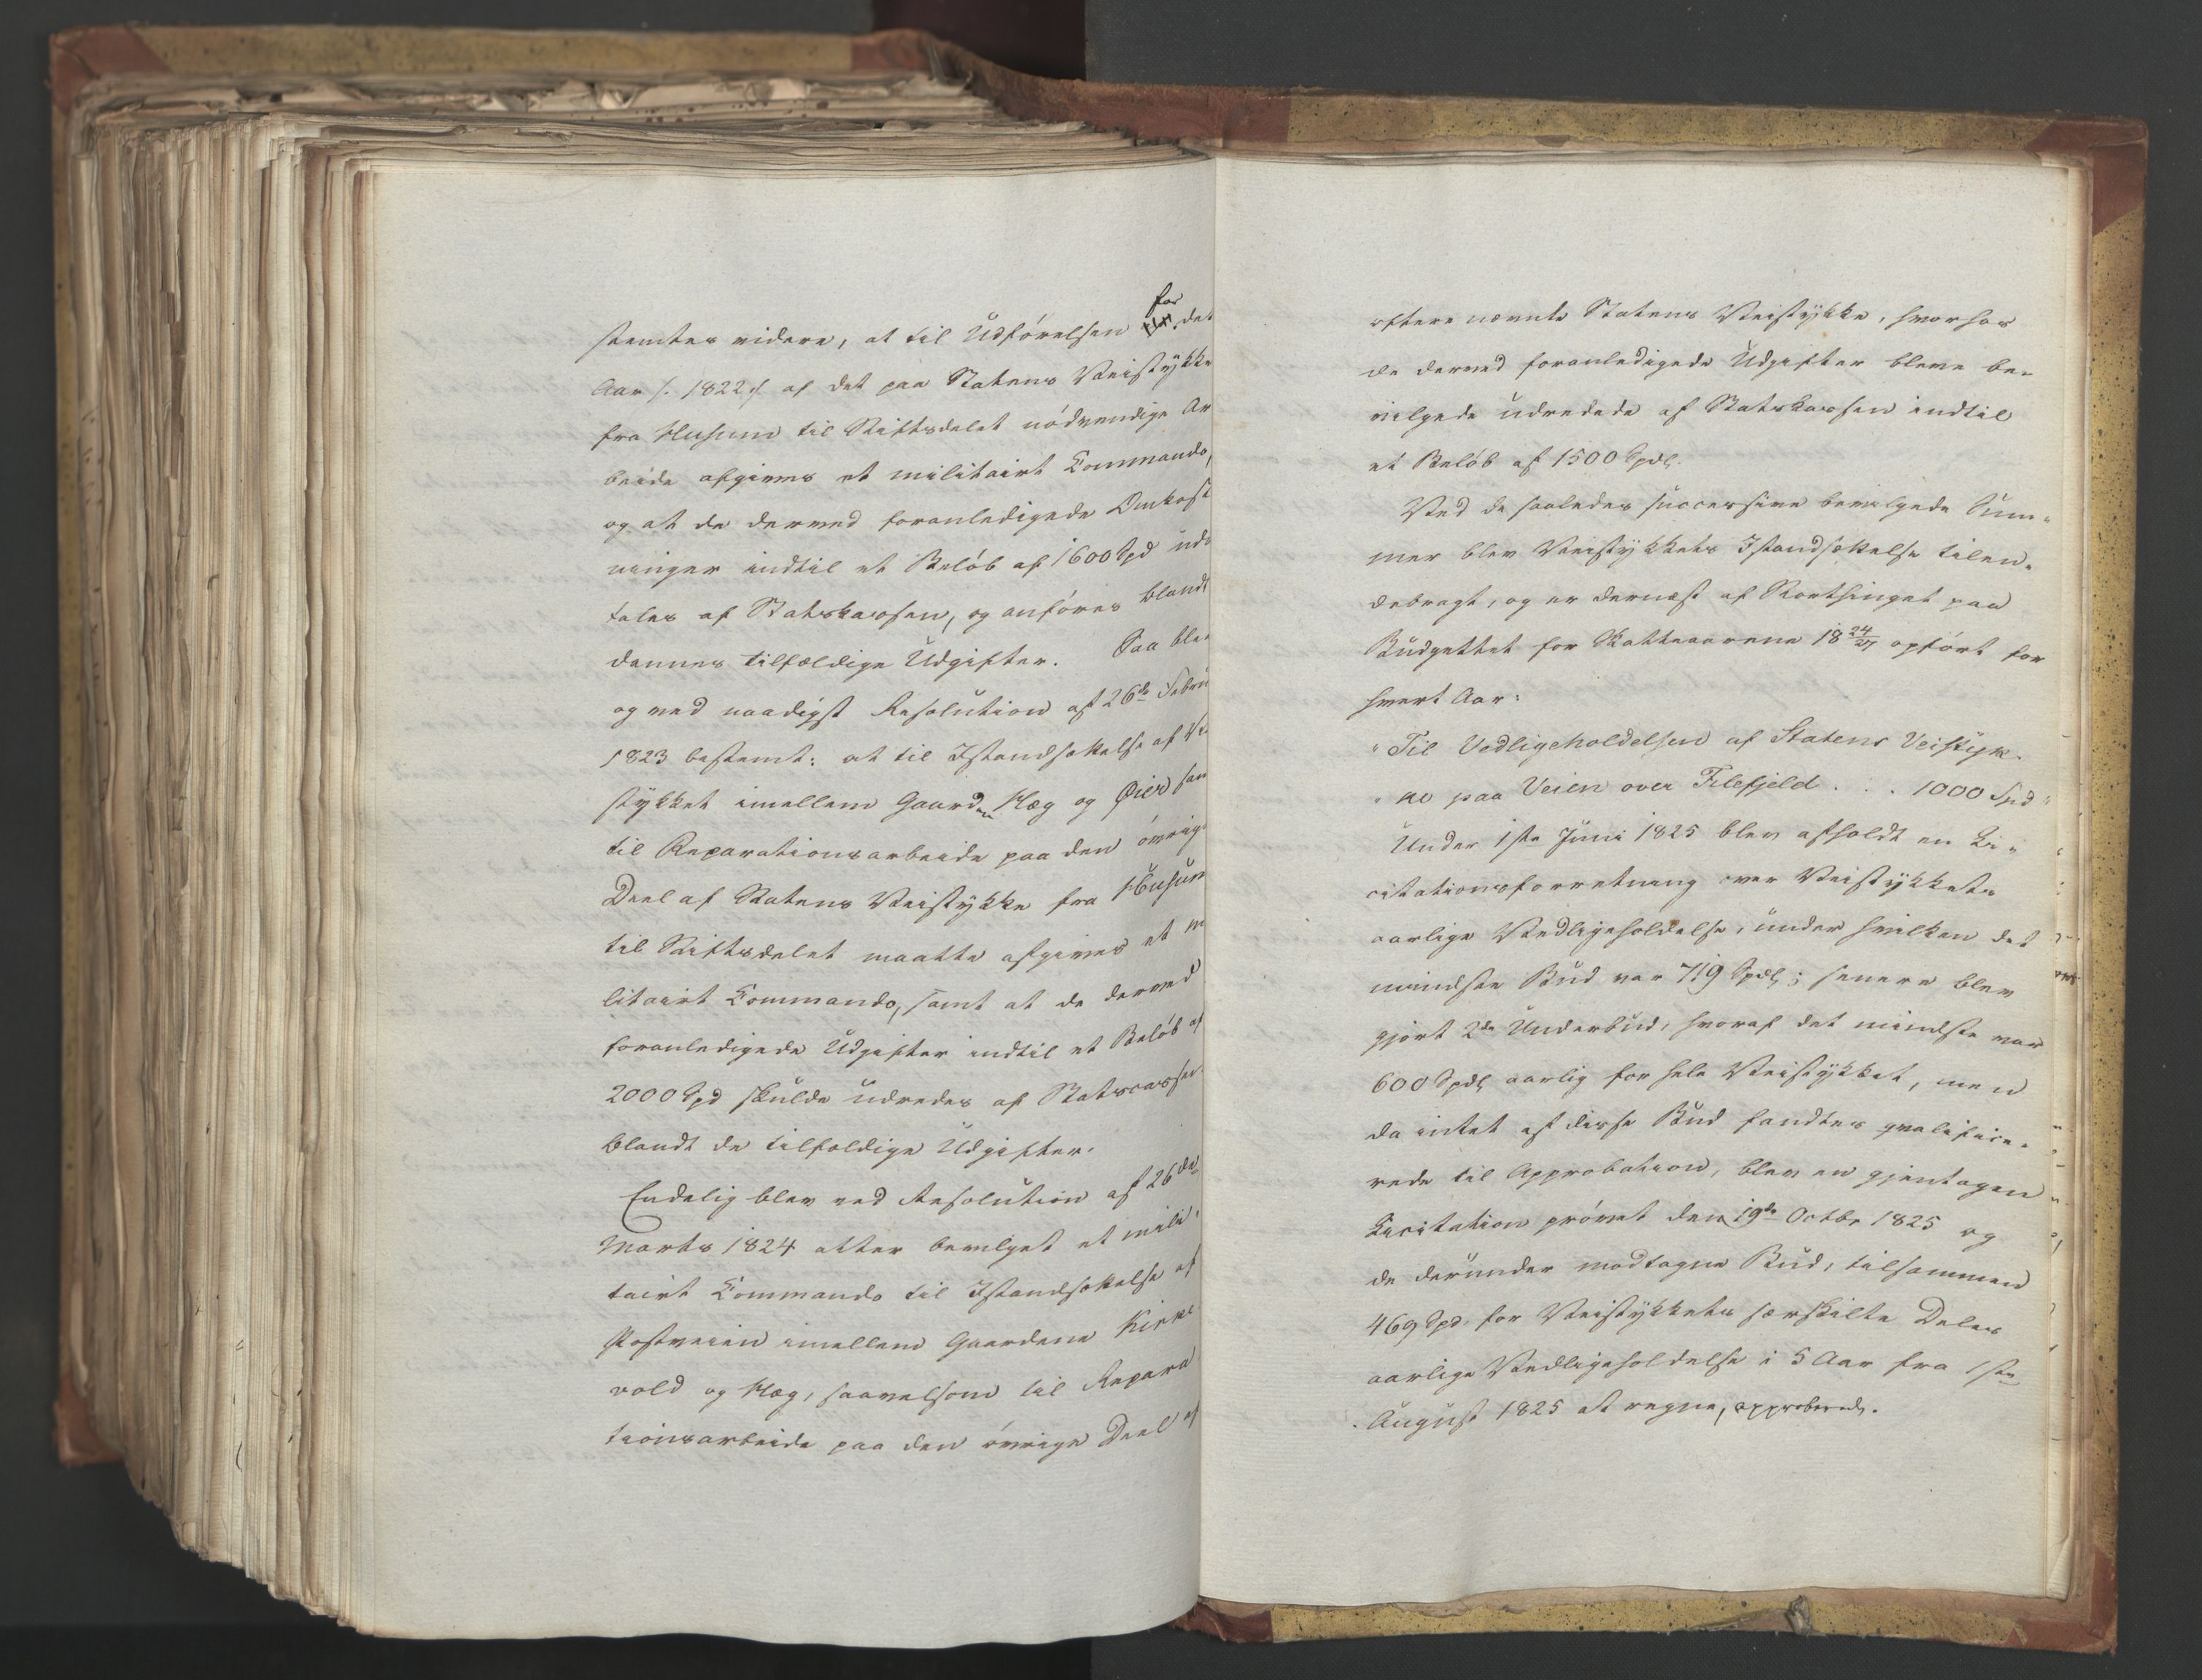 for
stemtes videre, at til Udførelsen det
Aar /: 1822 :/ af det paa Statens Veistykke
fra Husum til Stiftsdelet nødvendige Ar
beide afgives et militairt Commando,
og at de derved foranledigede Omkost
ninger indtil et Beløb af 1600 Spd ud
tales af Statskassen, og anføres blandt
dennes tilfældige Udgifter. Saa ble
og ved naadigst Resolution af 26de Febru
1823 bestemt: at til Istandsættelse af Vei
stykket imellem Gaarden Hæg og Øier sam
til Reparationsarbeide paa den øvrige
Deel af Statens Veistykke fra Husum
til Stiftsdelet maatte afgives et m
litairt Commando, samt at de derved
foranledigede Udgifter indtil et Beløb af
2000 Spd skulde udredes af Statscassen
blandt de tilfældige Udgifter.
Endelig blev ved Resolution af 26de
Marts 1824 atter bevilget et mili
tairt Commando til Istandsættelse af
Postveien imellem Gaardene Kirke
vold og Hæg, saavelsom til Repara
tionsarbeide paa den øvrige Deel af
oftere nævnte Statens Veistykke, hvorhos
de derved foranledigede Udgifter bleve be-
vilgede udredede af Statskassen indtil
et Beløb af 1500 Spdl.
Ved de saaledes successive bevilgede Sum-
mer blev Veistykkets Istandsættelse tilen-
debragt, og er dernæst af Storthinget paa
Budgettet for Skatteaarene 18 24/27 opført for
hvert Aar:
"Til Vedligeholdelsen af Statens Veistyk-
"ke paa Veien over Filefjeld . . . 1000 Spd"
Under 1ste Juni 1825 blev afholdt en Li-
citationsforretning over Veistykkets
aarlige Vedligeholdelse, under hvilken det
mindste Bud var 719 Spdl; senere blev
gjort 2de Underbud, hvoraf det mindste var
600 Spdl aarlig for hele Veistykket, men
da intet af disse Bud fandtes qvalifice-
rede til Approbation, blev en gjentagen
Licitation prøvet den 19de Octbr 1825 og
de derunder modtagne Bud, tilsammen
469 Spd for Veistykkets særskilte Deles
aarlige Vedligeholdelse i 5 Aar fra 1ste
August 1825 at regne, approberede.